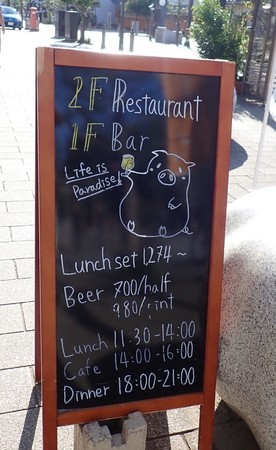 2F Restaurant
1F Bar
Life is
Paradise!
Lunch set 1274~
Beer 700/half
980/pint
Lunch 11:30-14:00
Cafe 14:00-16:00
Dinner 18:00-21:00